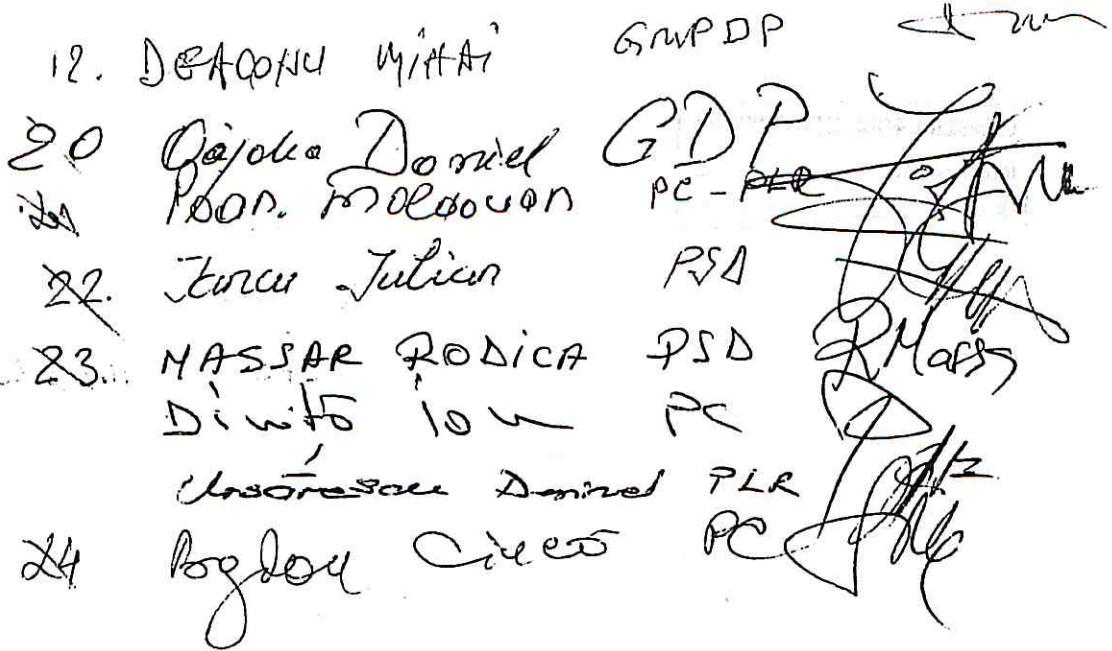 12. DEACONU MIHAI GMPDP
20 Gajoka Daniel GDP
21 Ioan. MOLDOVAN PC-PLR
22. Iancu Iulian PSD
23. NASSAR RODICA PSD RNassar
Diniță ion PC
Daniel PLR
24 Bogdan Ciucă PC